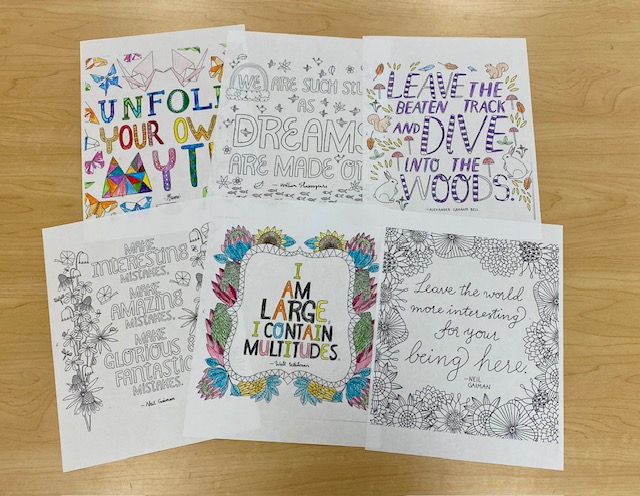 UNFOLD
YOUR OWN
MYTH
—Rumi
WE ARE SUCH STU
AS
DREAMS
ARE MADE OF
—William Shakespeare
LEAVE THE
BEATEN TRACK
AND DIVE
INTO THE
WOODS.
—ALEXANDER GRAHAM BELL
MAKE
INTERESTING
MISTAKES.
MAKE
AMAZING
MISTAKES.
MAKE
GLORIOUS
FANTASTIC
MISTAKES.
—Neil Gaiman
I
AM
LARGE,
I CONTAIN
MULTITUDES.
—Walt Whitman
Leave the world
more interesting
for your
being here.
—NEIL
GAIMAN